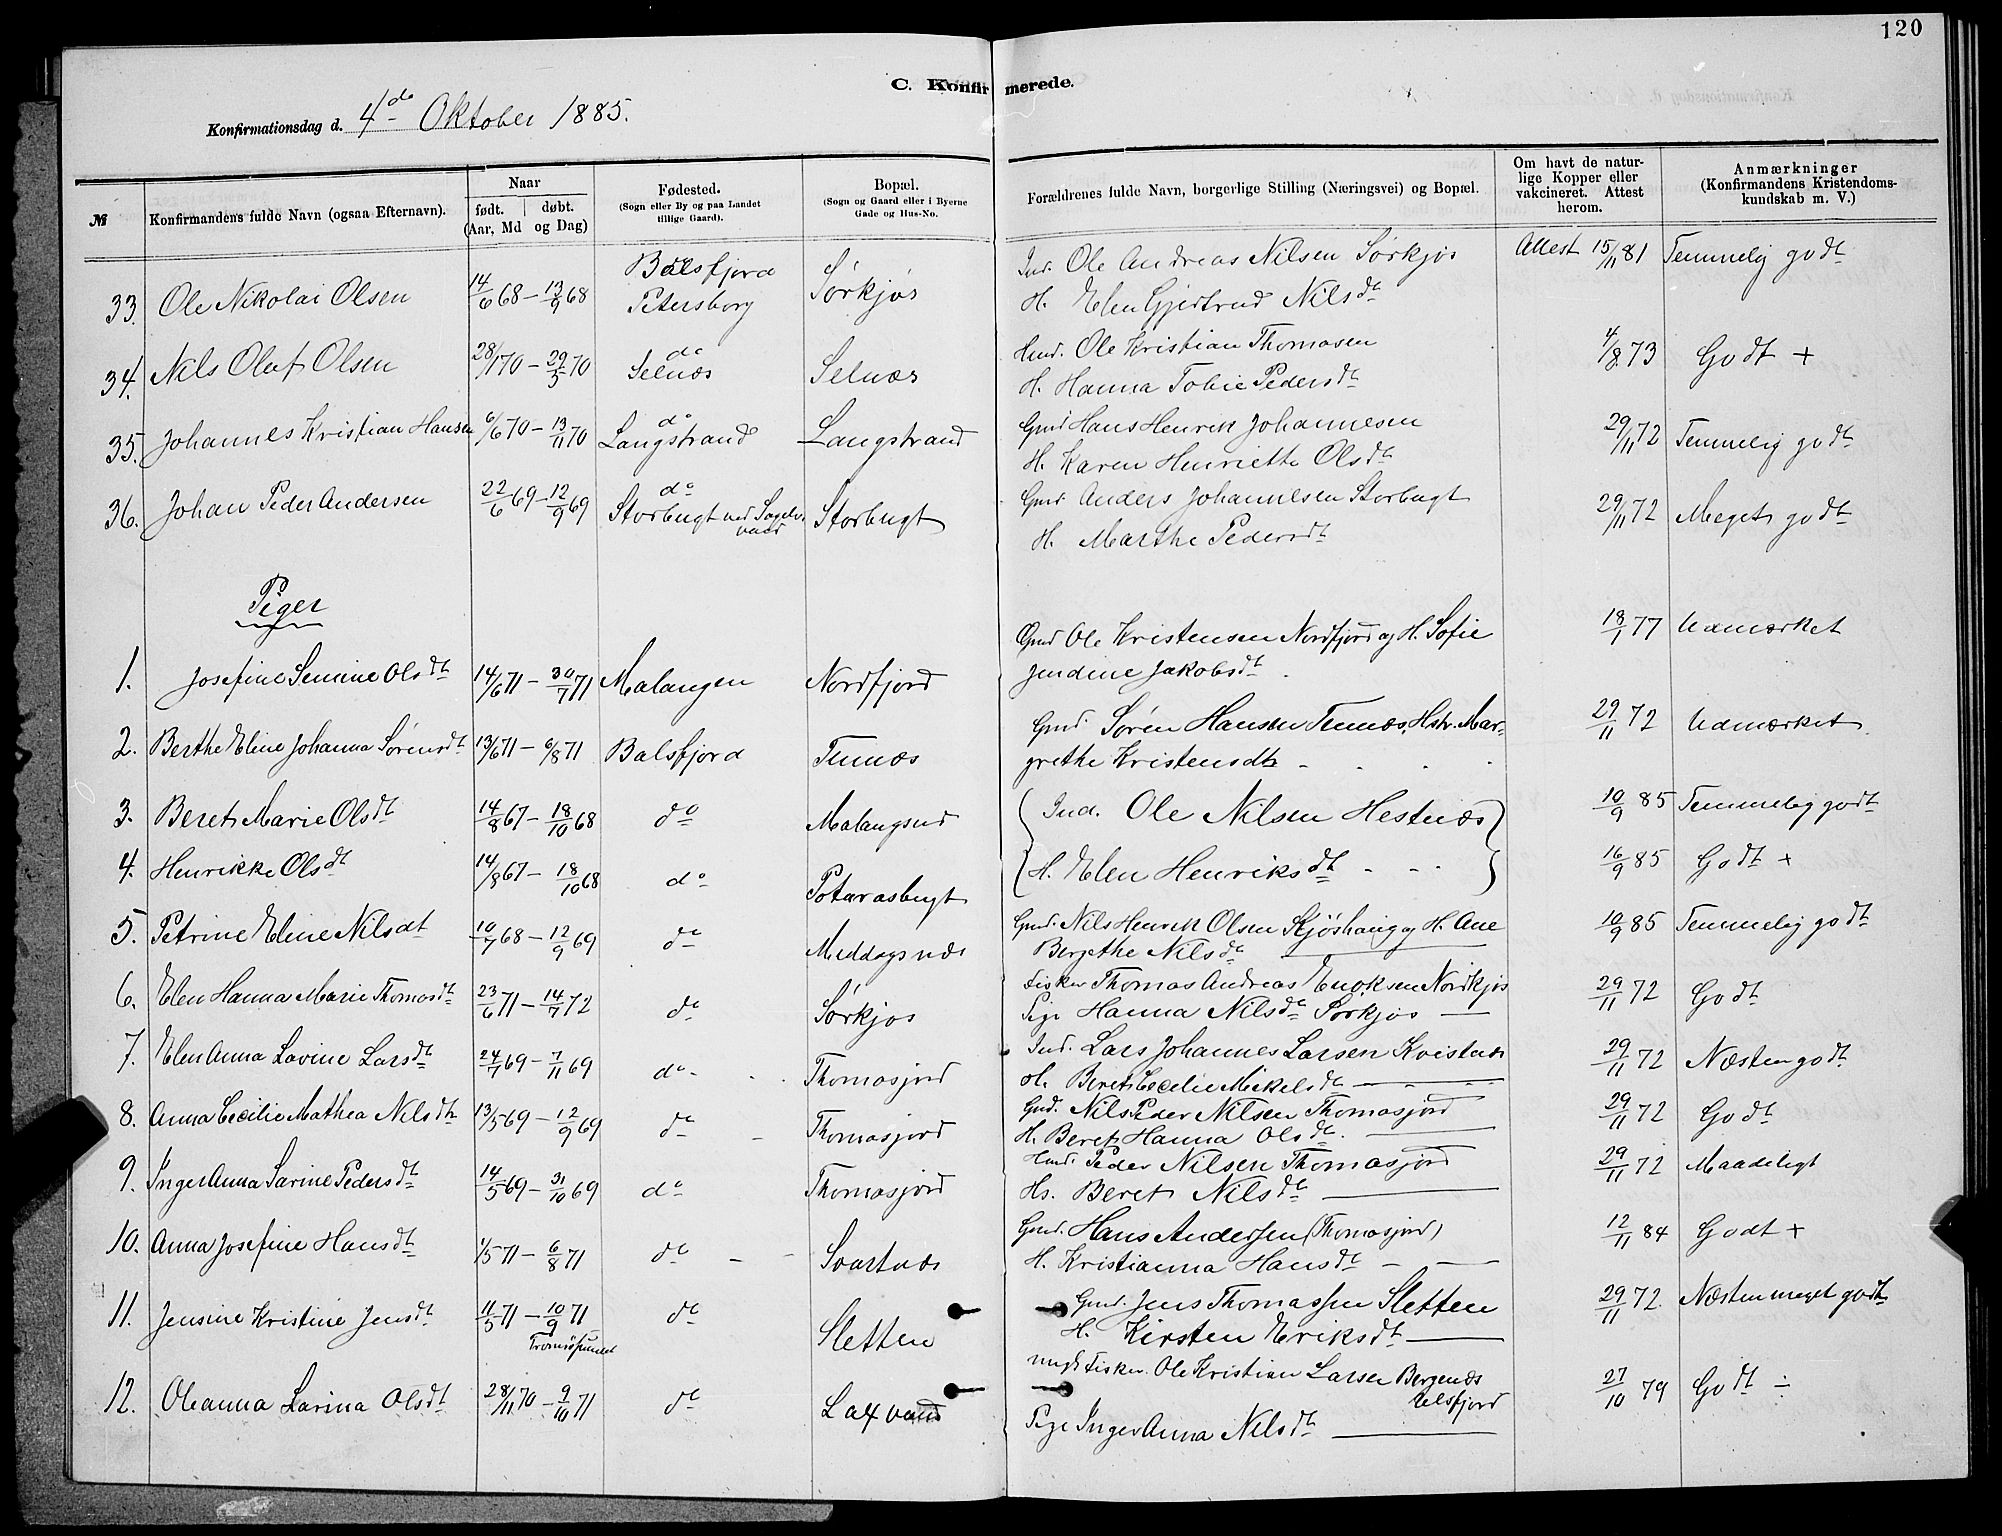 120
C. Konfirmerede.
Konfirmationsdag d. 4de Oktober 1885.
№
Konfirmandens fulde Navn (ogsaa Efternavn).
Naar
født. døbt.
(Aar, Md og Dag)
Fødested.
(Sogn eller By og paa Landet
tillige Gaard).
Bopæl.
(Sogn og Gaard eller i Byerne
Gade og Hus-No.
Forældrenes fulde Navn, borgerlige Stilling (Næringsvei) og Bopæl.
Om havt de natur-
lige Kopper eller
vakcineret. Attest
herom.
Anmærkninger
(Konfirmandens Kristendoms-
kundskab m. V.)
33. Ole Nikolai Olsen 14/6 68 – 13/9 68 Balsfjord Petersborg Sørkjos Ind. Ole Andreas Nilsen Sørkjos Attest 15/11 81 Temmelig godt
H. Elen Gjertrud Nilsdt
34. Nils Olaf Olsen 28/1 70 – 29/5 70 do Selnæs Selnæs Hmd. Ole Kristian Thomasen 4/8 73 Godt +
H. Hanna Tobie Pedersdt
35. Johannes Kristian Hansen 6/6 70 – 13/11 70 do Langstrand Langstrand Gmd Hans Henrik Johannesen 29/11 72 Temmelig godt
H. Karen Henriette Olsdt
36. Johan Peder Andersen 22/6 69 – 12/9 69 do Storbugt ved Sagelv- vand Storbugt Gmd Anders Johannesen Storbugt 29/11 72 Meget godt
H. Marthe Pedersdt
Piger
1. Josefine Semine Olsdt 14/6 71 – 30/7 71 Malangen Nordfjord Gmd Ole Kristensen Nordfjord og H. Sofie 18/1 77 Udmærket
Jendine Jakobsdt
2. Berthe Eline Johanna Sørensdt 13/6 71 – 6/8 71 Balsfjord Tennæs Gmd. Søren Hansen Tennæs, Hstr. Mar- 29/11 72 Udmærket
grethe Kristensdt
3. Beret Marie Olsdt 14/8 67 – 18/10 68 do Malangseid Ind. Ole Nilsen Hestnæs 10/9 85 Temmelig godt
4. Henrikke Olsdt 14/8 67 – 18/10 68 do H. Elen Henriksdt 16/9 85 Godt +
5. Petrine Eline Nilsdt 10/7 68 – 12/9 69 do Middagsnæs Gmd. Nils Henrik Olsen Skjøshaug og H. Ane 10/9 85 Temmelig godt
Bergethe Nilsdt
6. Elen Hanna Marie Thomasdt 23/6 71 – 14/7 72 do Sørkjos Fisker Thomas Andreas Enoksen Nordkjos 29/11 72 Godt
Pige Hanna Nilsdt Sørkjos
7. Elen Anna Lovine Larsdt 24/7 69 – 7/11 69 do Thomasjord Ind. Lars Johannes Larsen 29/11 72 Næsten godt
H. Beret Cecilie Mikelsdt
8. Anna Cecilie Mathea Nilsdt 13/5 69 – 12/9 69 do Thomasjord Gmd. Nils Peder Nilsen Thomasjord 29/11 72 Godt
H. Beret Hanna Olsdt.
9. Inger Anna Sarine Pedersdt 14/5 69 – 31/10 69 do Thomasjord Hmd. Peder Nilsen Thomasjord 29/11 72 Maadeligt
Hs. Beret Nilsdt
10. Anna Josefine Hansdt 1/5 71 – 6/8 71 do Svartnæs Gmd. Hans Anderssen (Thomasjord) 12/11 84 Godt +
H. Kristianna Hansdt
11. Jensine Kristine Jensdt 11/5 71 – 10/9 71 Tromsøsundet do Sletten Gmd. Jens Thomassen Sletten 29/11 72. Næsten meget godt
H. Kirsten Eriksdt
12. Oleanna Larina Olsdt 28/11 70 – 9/10 71 do Laxvand ungk Fisker Ole Kristian Larsen Bergenæs Ulsfjord 27/10 79 Godt ÷
Pige Inger Anna Nilsdt